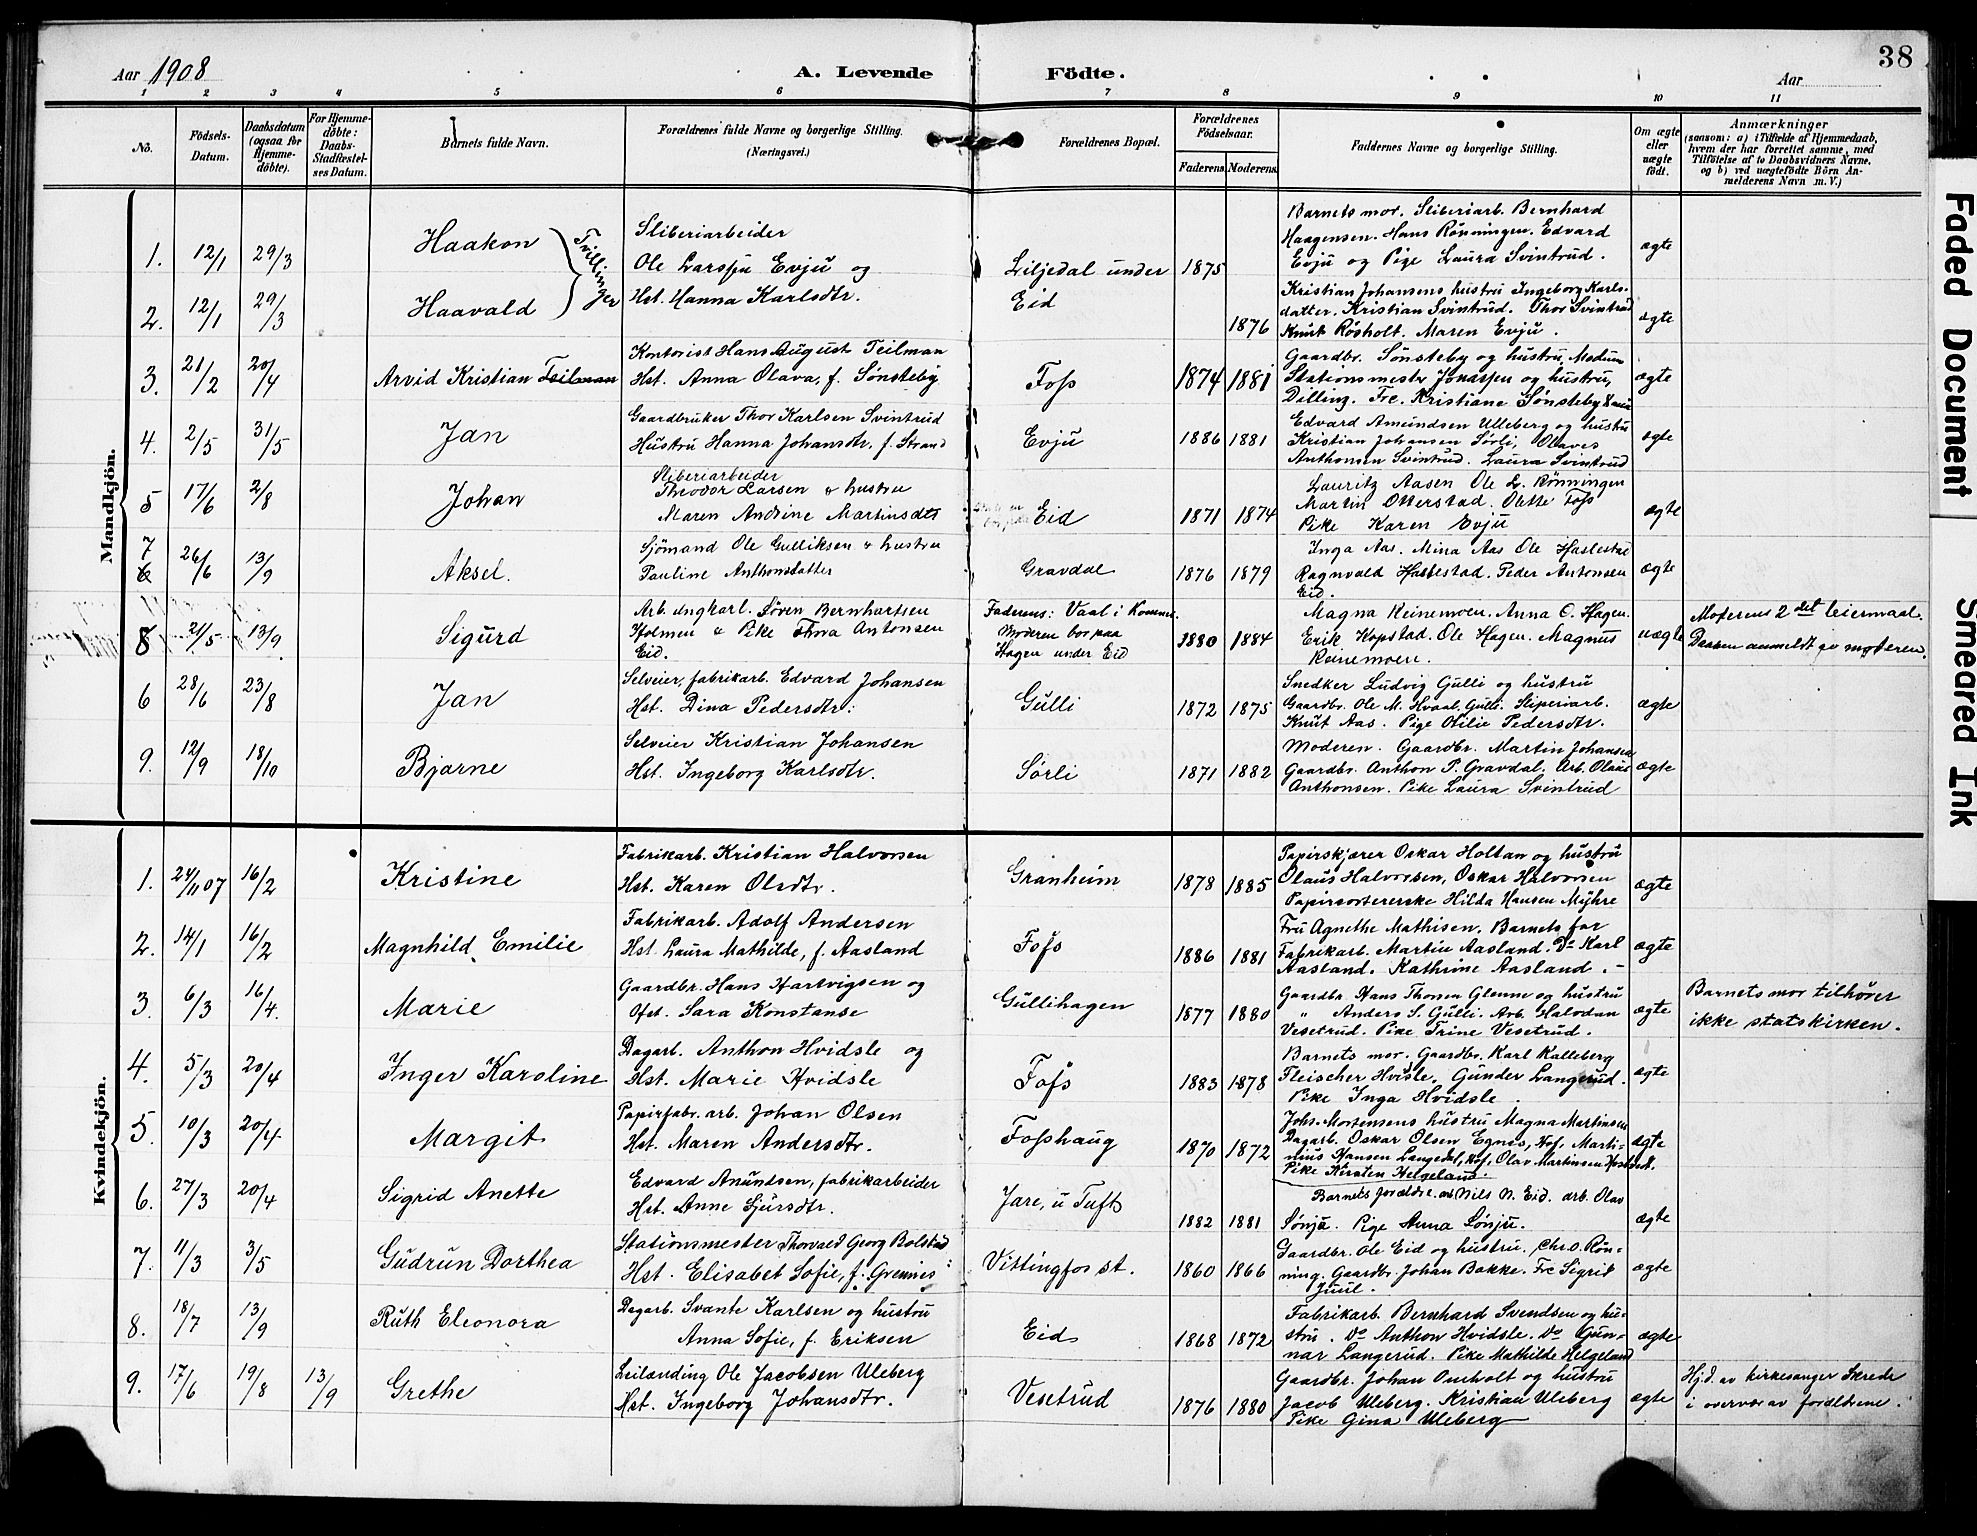 Aar 1908
A. Levende Födte.
Aar
38
1 2 3 4 5 6 7 8 9 10 11
No.
Födsels-Datum.
Daabsdatum (ogsaa for Hjemme-döbte).
For Hjemme-döbte: Daabs-Stadfæstel-ses Datum.
Barnets fulde Navn.
Forældrenes fulde Navne og borgerlige Stilling. (Næringsvei.)
Forældrenes Bopæl.
Forældrenes Födselsaar.
Faderens Moderens
Faddernes Navne og borgerlige Stilling.
Om ægte eller uægte födt.
Anmærkninger
(saasom: a) i Tilfælde af Hjemmedaab, hvem der har forrettet samme, med Tilföielse af to Daabsvidners Navne, og b) ved uægtefödte Börn An-melderens Navn m. V.)
Mandkjön.
1. 12/1 29/3 Haakon
Tvillinger
Sliberiarbeider
Ole Larssen Evju og
Hst. Hanna Karlsdtr.
Liljedal under
Eid
1875
Barnets mor. Sliberiarb. Bernhard
Haagensen. Hans Rönningen. Edvard
Evju og Pige Laura Svintrud.
ægte
2. 12/1 29/3 Haavald
1876
Kristian Johansens hustru Ingeborg Karls-
datter. Kristian Svintrud. Thor Svintrud
Knut Røsholt. Maren Evju.
ægte
3. 21/2 20/4 Arvid Kristian Teilman
Kontorist Hans August Teilman
Hst. Anna Olava, f. Sønsteby
Foss
1874 1881
Gaardbr. Sønsteby og hustru, Modum
Stationsmestr Jonassen og hustru,
Dilling. Frc. Kristiane Sønsteby
ægte
4. 2/5 31/5 Jan
Gaardbruker Thor Karlsen Svintrud
Hustru Hanna Johansdtr, f. Strand
Evju
1886 1881
Edvard Amundsen Ulleberg og hustru
Kristian Johansen Sørli, Olaves
Anthonsen Svintrud. Laura Svintrud
ægte
5 17/6 2/8 Johan
Sliberiarbeider
Theodor Larsen & hustru
Maren Andrine Martinsdtr
Eid
1871 1874
Lauritz Aasen Ole L. Rönningen
Martin Otterstad. Olette Foss
Pike Karen Evju
ægte
7 6 26/6 13/9 Aksel.
Sjömand Ole Gulliksen & hustru
Pauline Anthonsdatter
Gravdal
1876 1879
Inga Aas. Mina Aas Ole Haslestad
Ragnvald Haslestad. Peder Antonsen
Eid.
ægte
8 21/5 13/9. Sigurd
Arb. ungkarl. Søren Bernhartsen
Holmen & Pike Thora Antonsen
Eid.
Faderens: Vaal i Komnes.
Moderen bor paa
Hagen under Eid
1880 1884
Magna Reinemoen. Anna O. Hagen.
Erik Kopstad. Ole Hagen. Magnus
Reinemoen.
uægte
Moderens 2det leiermaal.
Daaben anmeldt av moderen.
6 28/6 23/8 Jan
Selveier, fabrikarb. Edvard Johansen
Hst. Dina Pedersdtr.
Gulli
1872 1875
Snedker Ludvig Gulli og hustru
Gaardbr. Ole M. Hvaal, Gulli. Sliperiarb.
Knut Aas. Pige Otilie Pedersdtr.
ægte
9. 12/9 18/10 Bjarne
Selveier Kristian Johansen
Hst. Ingeborg Karlsdtr.
Sørli
1871 1882
Moderen. Gaardbr. Martin Johansen
Gaardbr. Anthon P. Gravdal. Arb. Olaus
Anthonsen. Pike Laura Svintrud
ægte
Kvindekjön.
1. 24/11 07 16/2 Kristine
Fabrikarb. Kristian Halvorsen
Hst. Karen Olsdtr.
Granheim
1878 1885
Papirskjærer Oskar Holtan og hustru
Olaus Halvorsen, Oskar Halvorsen
Papirsortererske Hilda Hansen Myhre
ægte
2. 14/1 16/2 Magnhild Emilie
Fabrikarb. Adolf Andersen
Hst. Laura Mathilde, f. Aasland
Foss
1886 1881
Fru Agnethe Mathisen. Barnets far
Fabrikarb. Martin Aasland. Do Karl
Aasland. Kathrine Aasland.
ægte
3. 6/3 16/4. Marie
Gaardbr. Hans Hartvigsen og
Hst. Sara Konstanse
Gullihagen
1877 1880
Gaardbr. Hans Thomn Glenne og hustru
" Anders S. Gulli. Arb. Halvdan
Vesetrud. Pike Trine Vesetrud.
ægte
Barnets mor tilhører
ikke statskirken.
4. 5/3 20/4 Inger Karoline
Dagarb. Anthon Hvidsle og
Hst. Marie Hvidsle
Foss
1883 1878
Barnets mor. Gaardbr. Karl Kalleberg
Fleischer Hvisle. Gunder Langerud.
Pike Inga Hvidsle.
ægte
5. 10/3 20/4 Margit
Papirfabr. arb. Johan Olsen
Hst. Maren Andersdtr.
Fosshaug
1870 1872
Johs. Mortensens hustru Magna Martinsen
Dagarb. Oskar Olsen Egnes, Hof, Marti-
nius Hansen Langedal, Hof, Olav Martinsen
Pike Kirsten Helgeland
ægte
6. 27/3 20/4 Sigrid Anette
Edvard Amundsen, fabrikarbeider
Hst. Anne Sjursdtr.
Jare, u Tufts
1882 1881
Barnets forældre. Nils N. Eid. arb. Olav
Sønju. Pige Anna Sønju.
ægte
7. 11/3 3/5 Gudrun Dorthea
Stationsmester Thorvald Georg Bolstad
Hst. Elisabet Sofie, f. Grennes
Vittingfos st.
1860 1866
Gaardbr. Ole Eid og hustru. Chr. O. Røn-
ning. Gaardbr. Johan Bakke. Frc Sigrid
Juul.
ægte
8. 18/7 13/9 Ruth Eleonora
Dagarb. Svante Karlsen og hustru
Anna Sofie, f. Eriksen
Eid
1868 1872
Fabrikarb. Bernhard Svendsen og hu-
stru. Do Anthon Hvidsle. Do Gun-
nar Langerud. Pike Mathilde Helgeland
ægte
9. 17/6 19/8 13/9 Grethe
Leilænding Ole Jacobsen Uleberg
Hst. Ingeborg Johansdtr.
Vesetrud
1876 1880
Gaardbr. Johan Omholt og hustru
Jacob Uleberg. Kristian Uleberg
Pike Gina Uleberg
ægte
Hjd. av kirkesanger Skrede
i overvær av forældrene.
Faded Document
Smeared Ink